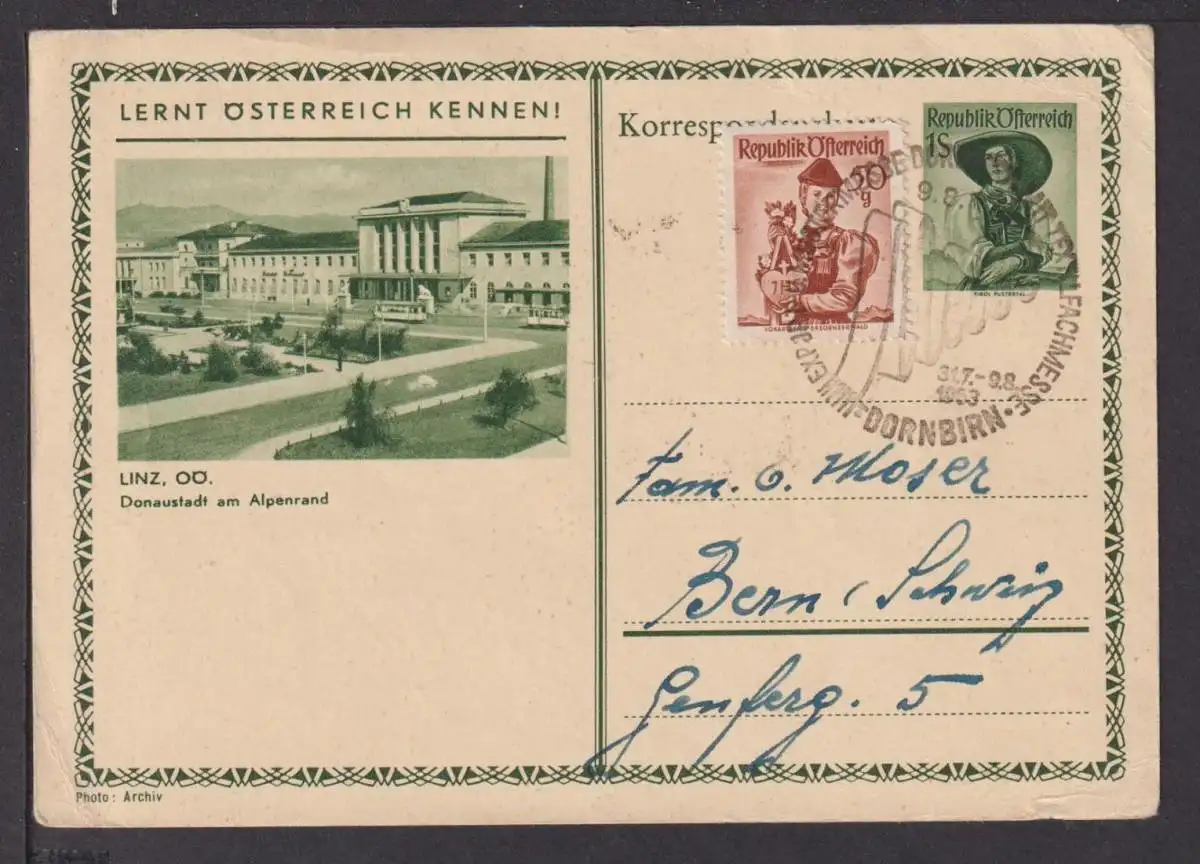 LERNT ÖSTERREICH KENNEN!
LINZ, OÖ.
Donaustadt am Alpenrand
Photo: Archiv
Republik Österreich
VORARLBERG BREGENZERWALD
Republik Österreich
1S
TIROL PUSTERTAL
9.8.
31.7.-9.8.
1953
EXPORT
DORNBIRN
Fam. O. Moser
Bern, Schweiz
Genferg. 5